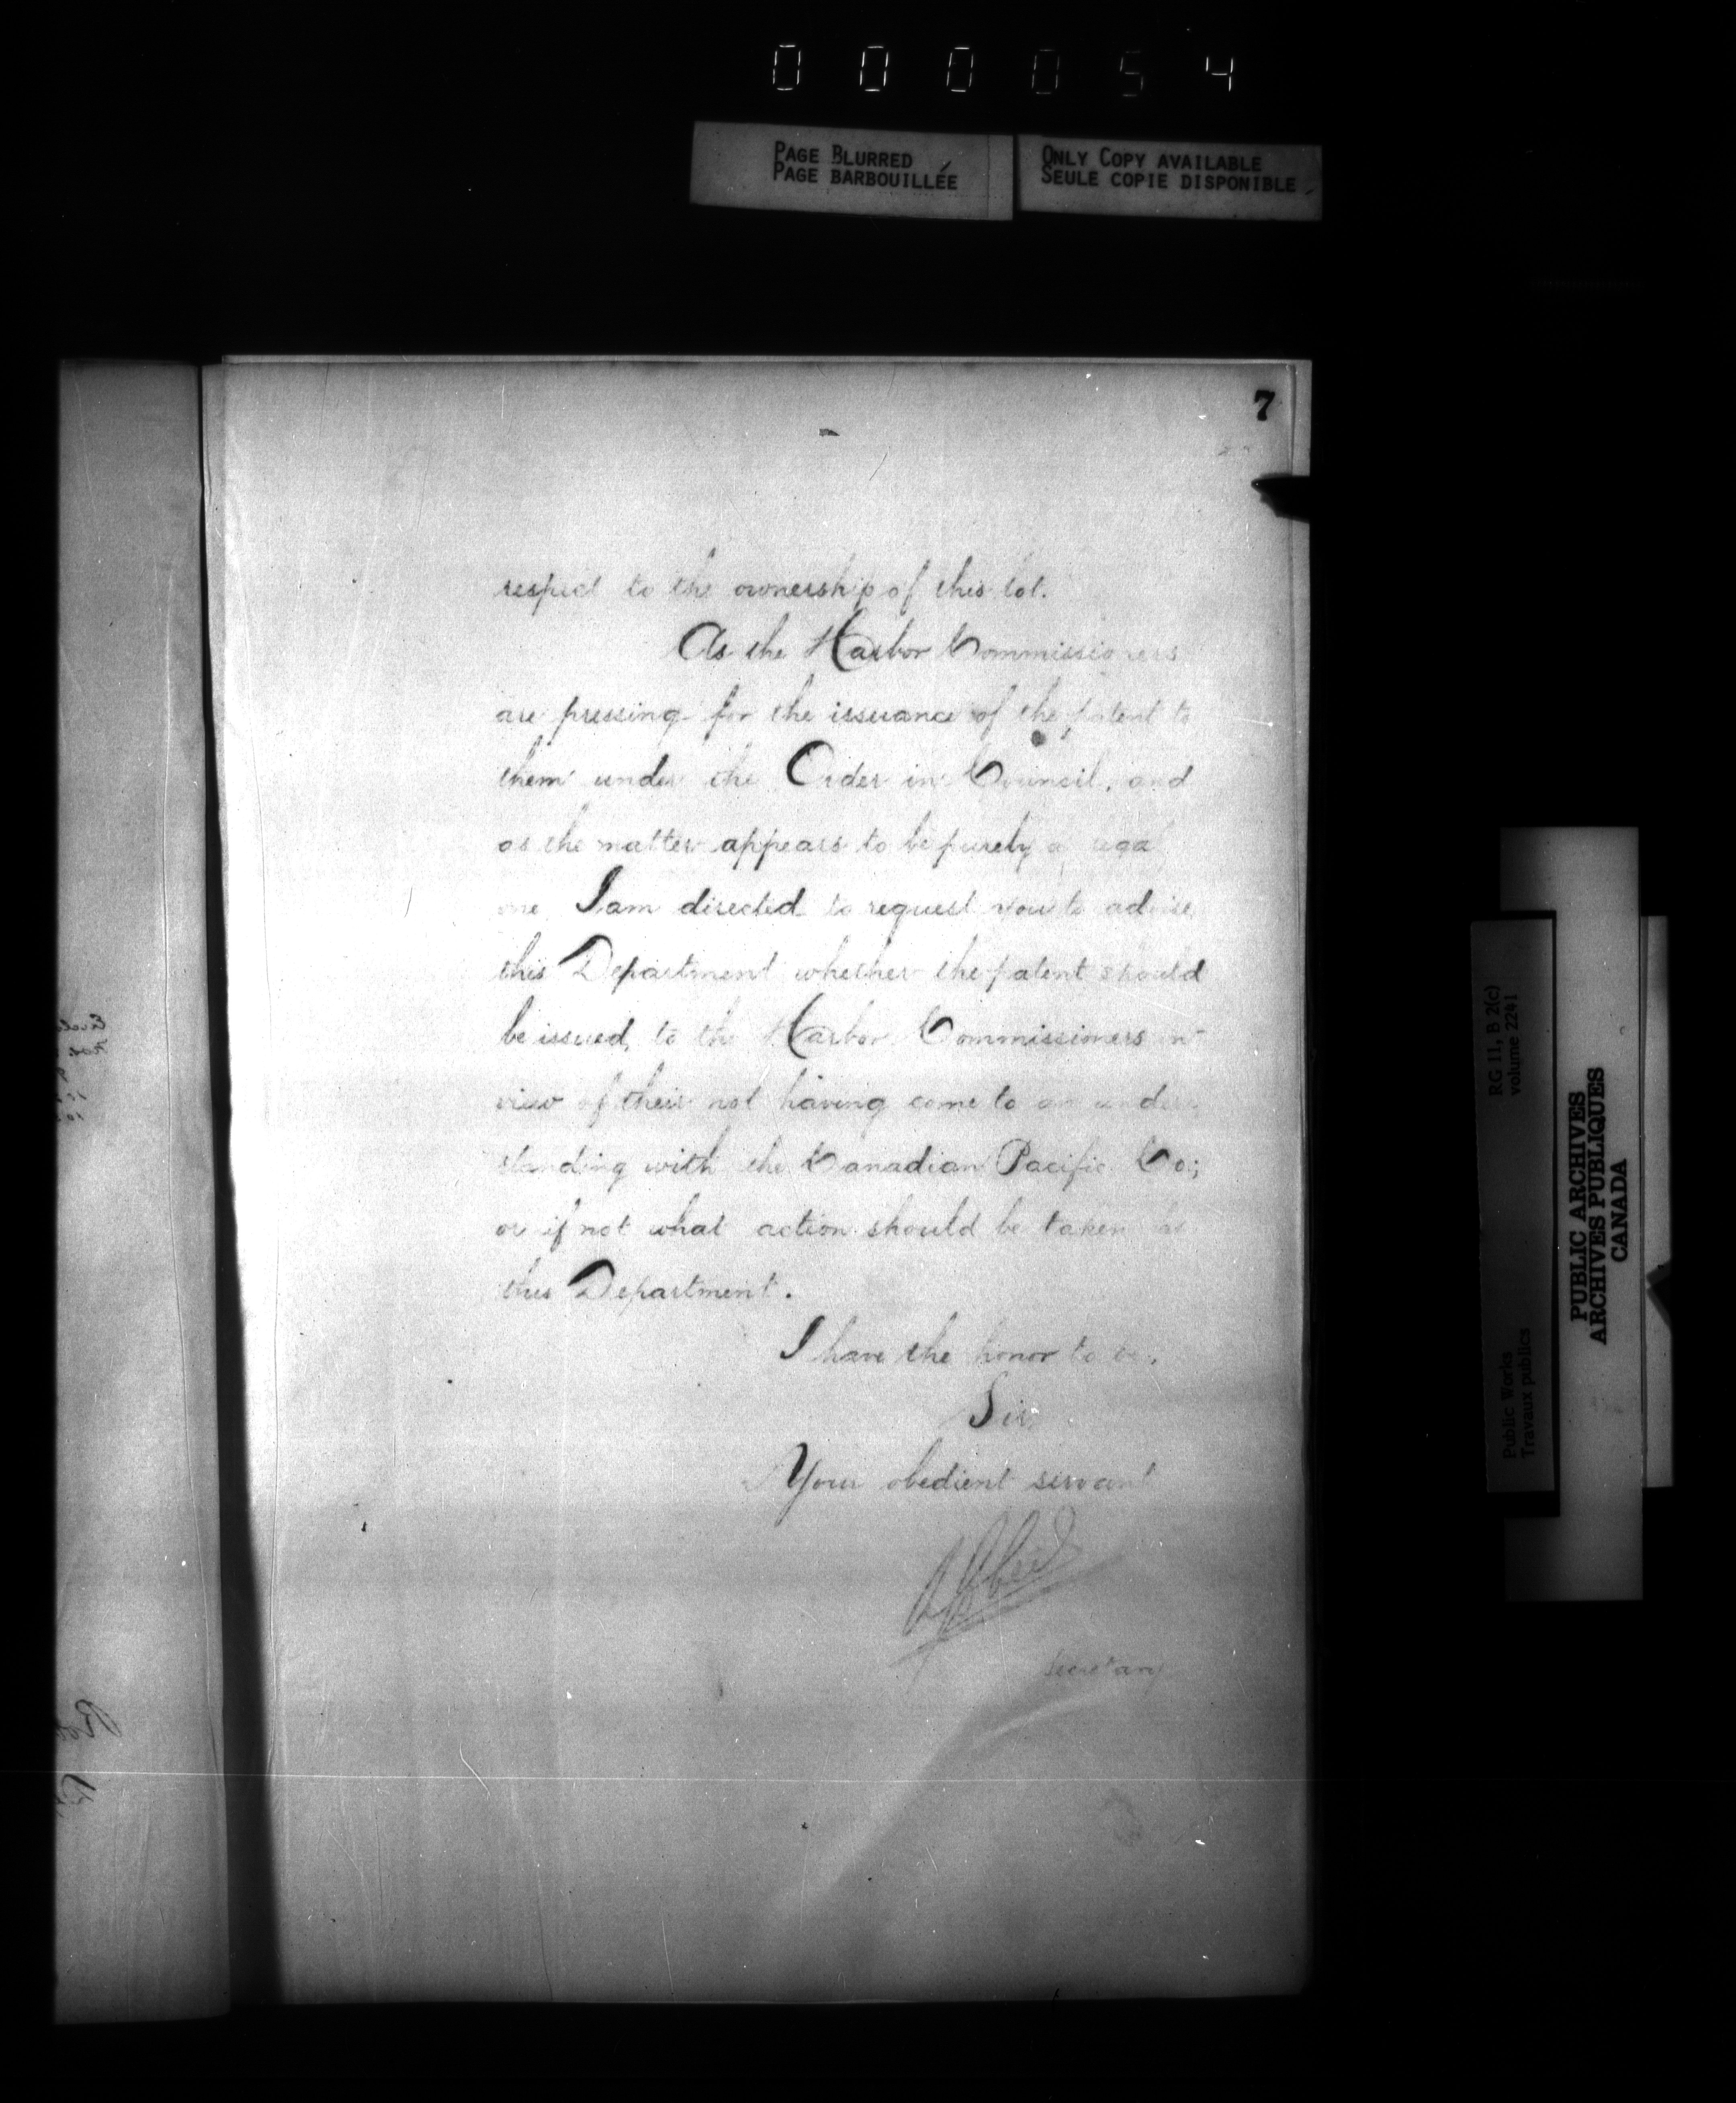 000054
PAGE BLURRED
PAGE BARBOUILLÉE
ONLY COPY AVAILABLE
SEULE COPIE DISPONIBLE
7
respect to the ownership of this lot.
As the Harbor Commissioners
are pressing for the issuance of the patent to
them under the Order in Council, and
as the matter appears to be purely a legal
one I am directed to request you to advise
this Department whether the patent should
be issued, to the Harbor Commissioners in
view of their not having come to an under
standing with the Canadian Pacific Co;
or if not what action should be taken by
this Department.
I have the honor to be,
Sir,
Your obedient servant
Secretary
RG 11, B 2(c)
volume 2241
Public Works
Travaux publics
PUBLIC ARCHIVES
ARCHIVES PUBLIQUES
CANADA